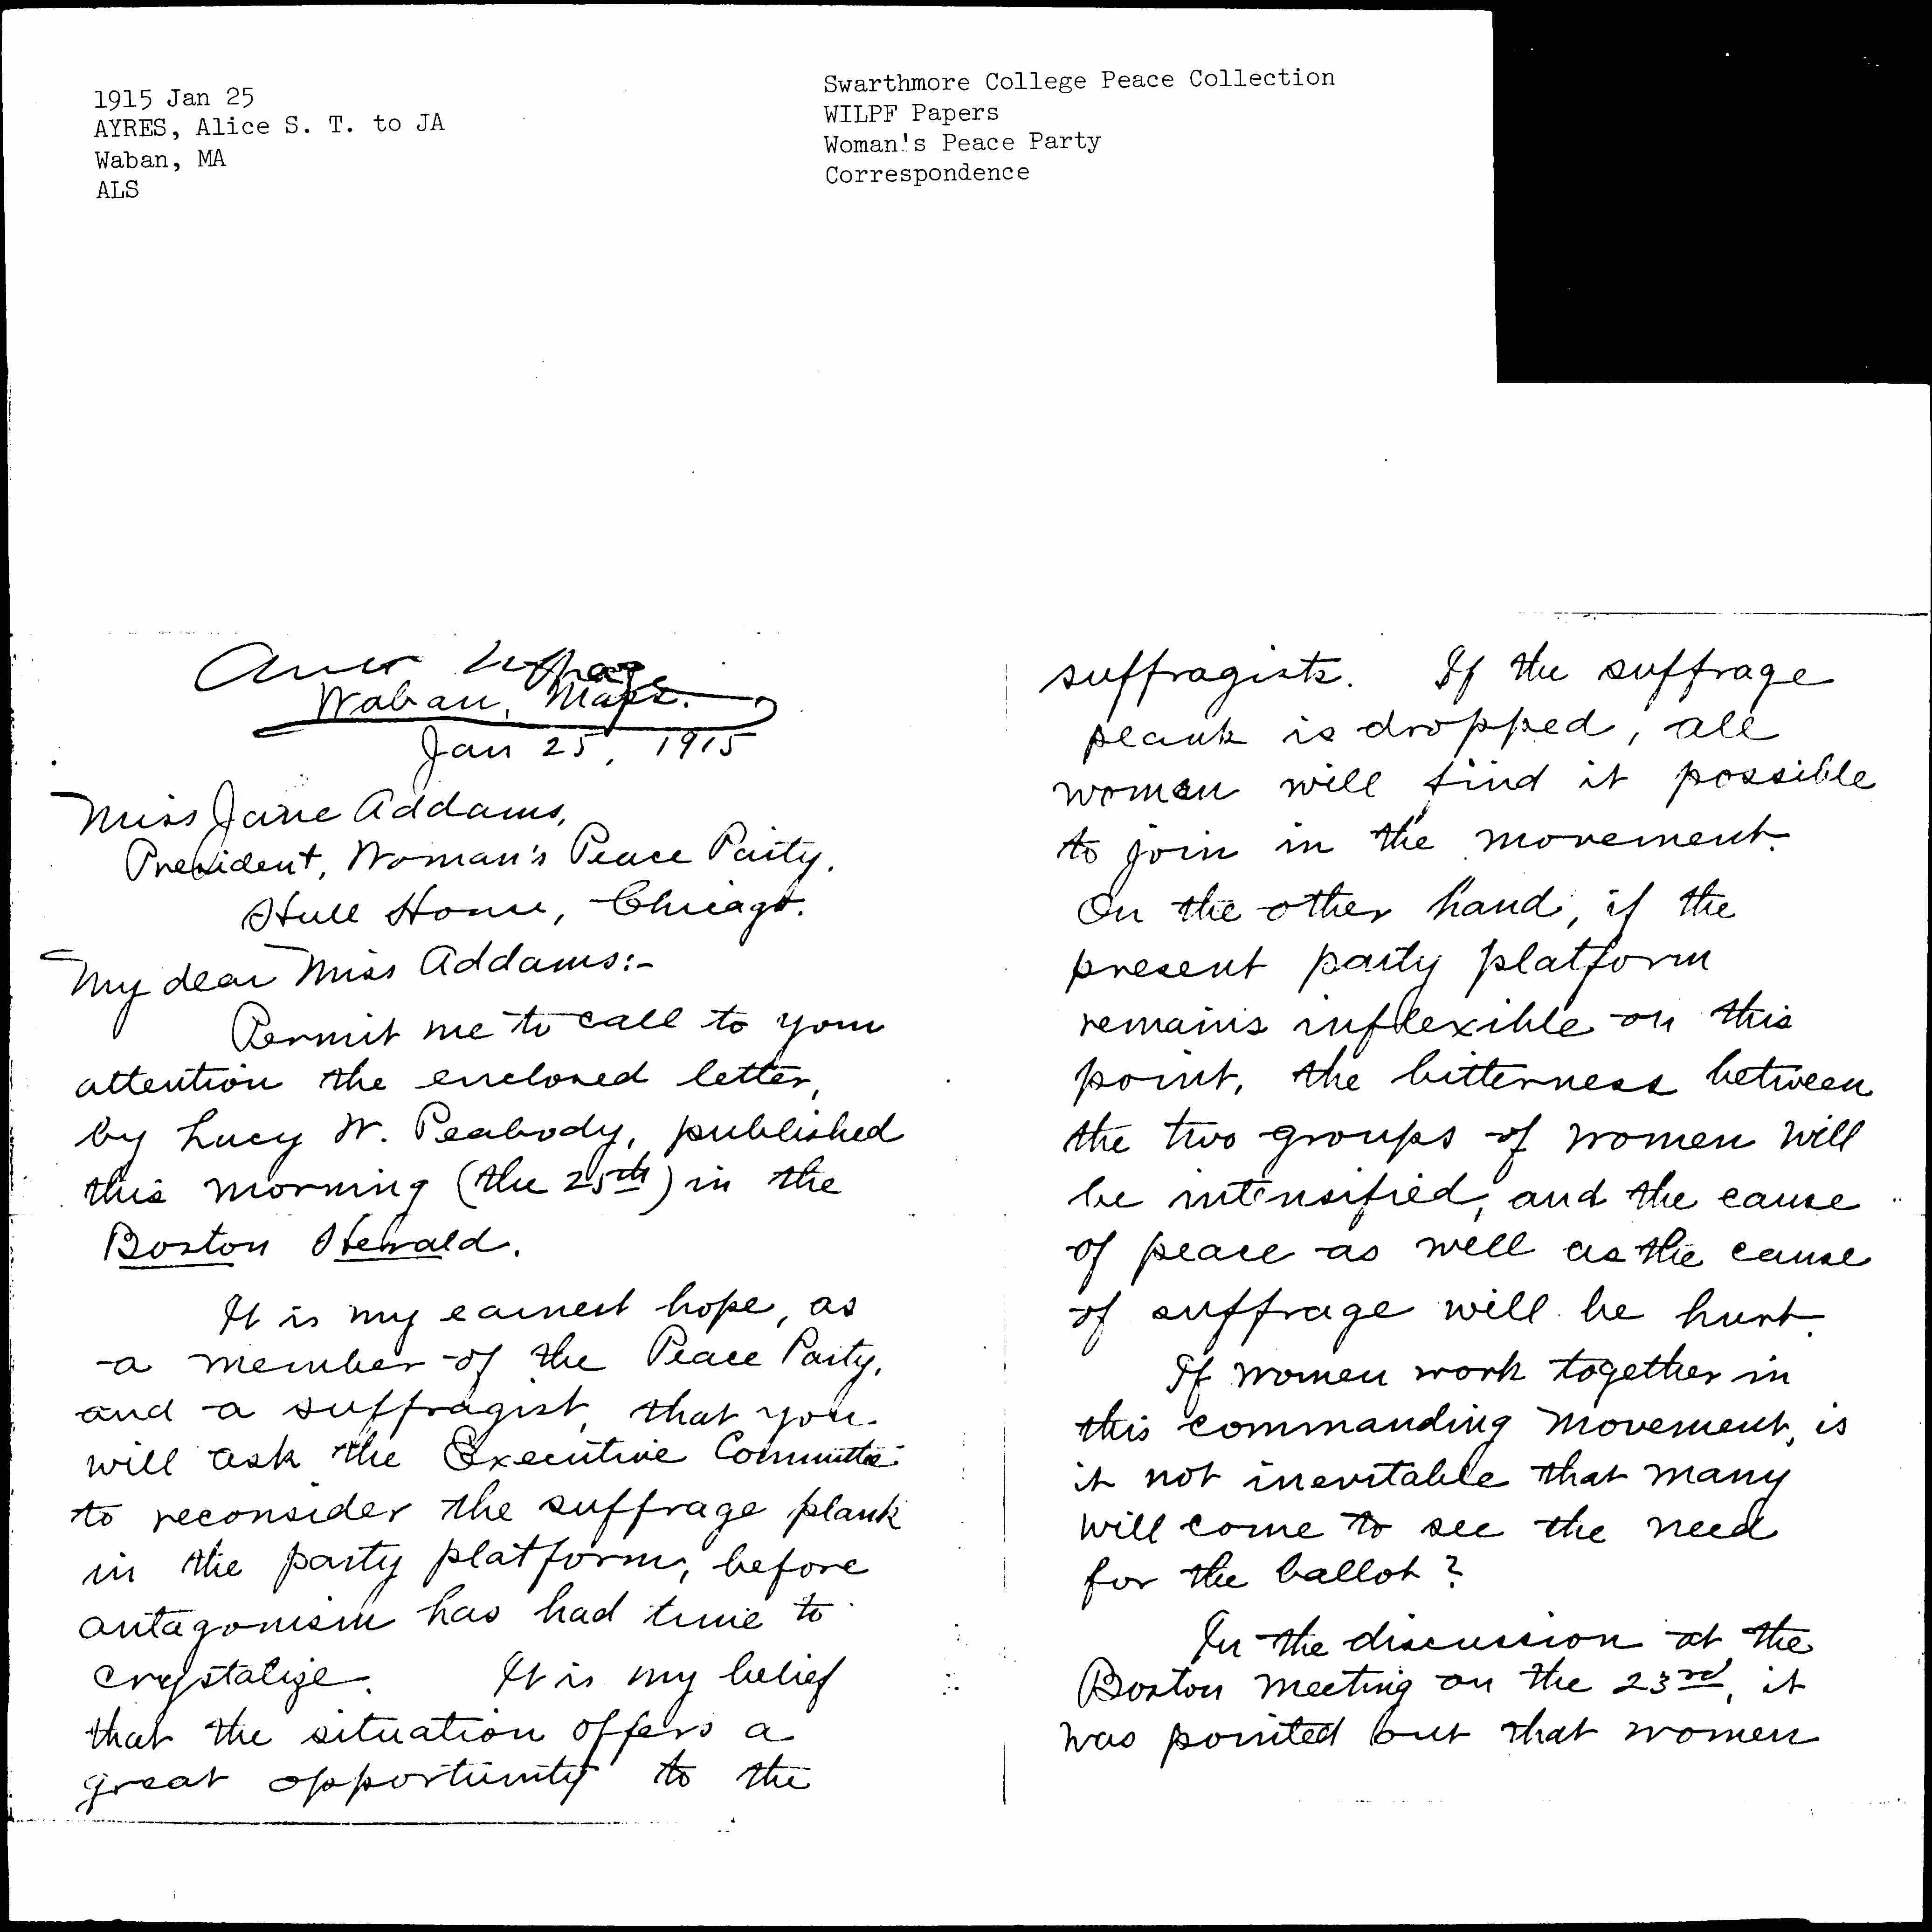 1915 Jan 25
AYRES, Alice S. T. to JA
Waban, MA
ALS
Swarthmore College Peace Collection
WILPF Papers
Woman's Peace Party
Correspondence
Suffrage
Waban, Mass.
Jan 25, 1915
Miss Jane Addams,
President, Woman's Peace Party,
Hull House, Chicago.
My dear Miss Addams:-
Permit me to call to your
attention the enclosed letter,
by Lucy W. Peabody, published
this morning (the 25th) in the
Boston Herald.
It is my earnest hope, as
a member of the Peace Party,
and a suffragist, that you
will ask the Executive Committee
to reconsider the suffrage plank
in the party platform, before
antagonism has had time to
crystalize. It is my belief
that the situation offers a
great opportunity to the
suffragists. If the suffrage
plank is dropped, all
women will find it possible
to join in the movement.
On the other hand, if the
present party platform
remains inflexible on this
point, the bitterness between
the two groups of women will
be intensified, and the cause
of peace as well as the cause
of suffrage will be hurt.
If women work together in
this commanding movement, is
it not inevitable that many
will come to see the need
for the ballot?
In the discussion at the
Boston meeting on the 23rd, it
was pointed out that women